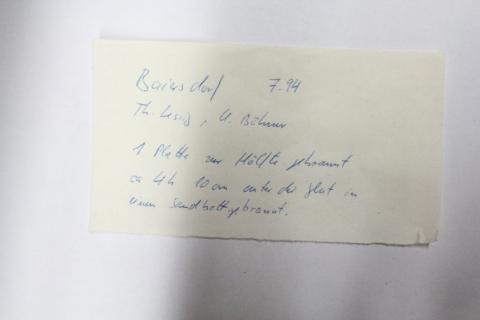 Baiersdorf 7.94
Th. Lessig, U. Böhner
1 Platte zur Hälfte gebrannt
ca 4h 10cm unter der Glut in
einem Sandbett gebrannt.